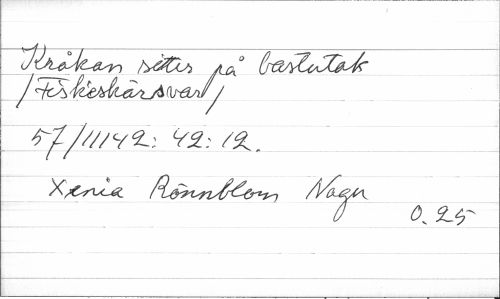 Kråkan sitter på bastutak
/Fiskeskärsvar/
57/11142:42:12.
Xenia Rönnblom Nagu
0.25